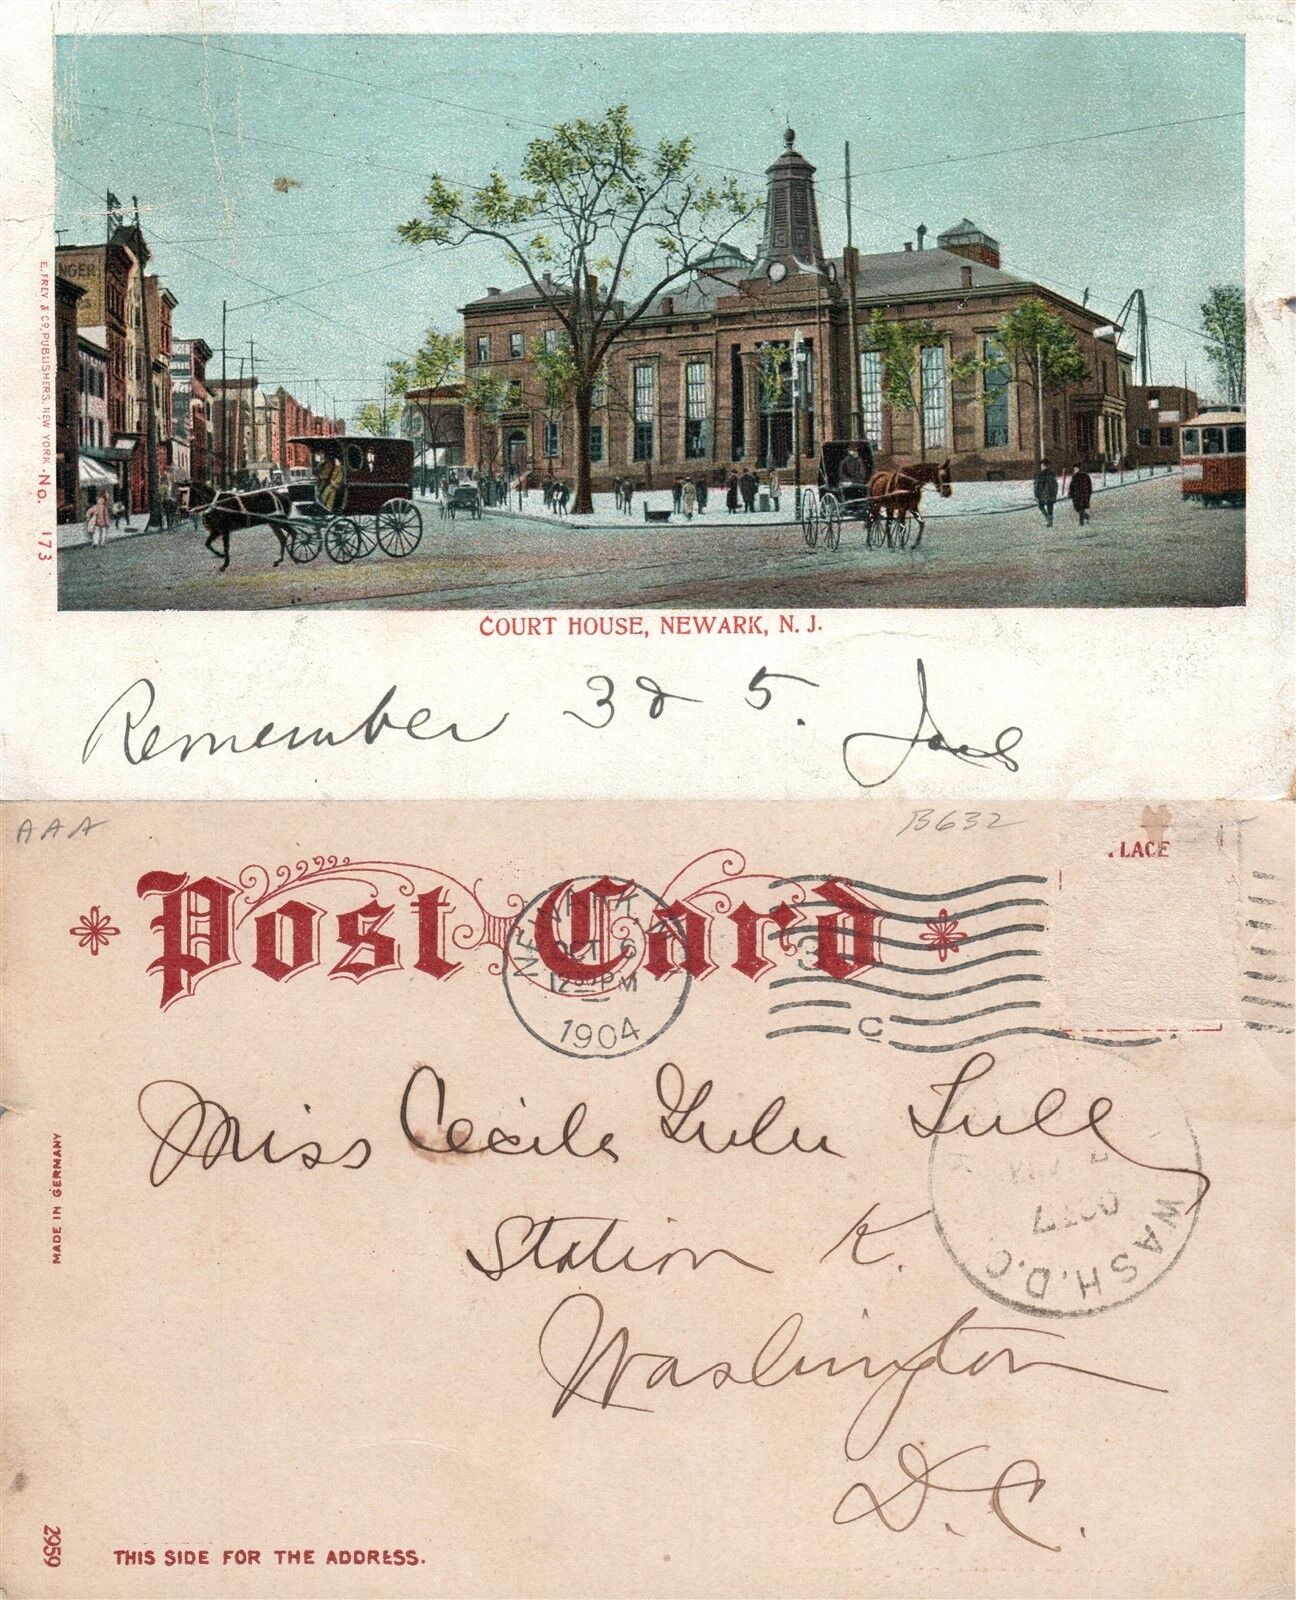 NGER
E. FREY & Co, PUBLISHERS, NEW YORK. No. 173
COURT HOUSE, NEWARK, N. J.
Remember 3 & 5. Jack
AAA
B632
Post Card
LACE
NEWARK
OCT 6
12 30 PM
1904
3
C
Miss Cecile Lulu Lull
Station K.
Washington
D. C.
WASH. D.C.
OCT 7
MADE IN GERMANY
2959
THIS SIDE FOR THE ADDRESS.